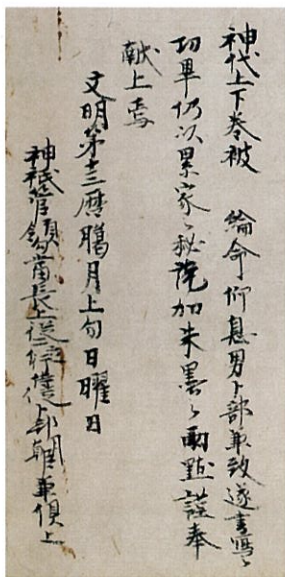 神代上下巻被 綸命仰息男卜部兼致遂書写之
功畢仍以累家之秘説加朱墨之両點謹奉
献上焉
文明第十三暦臈月上旬日曜日
神祇管領勾当長上従二位卜部朝臣兼倶上